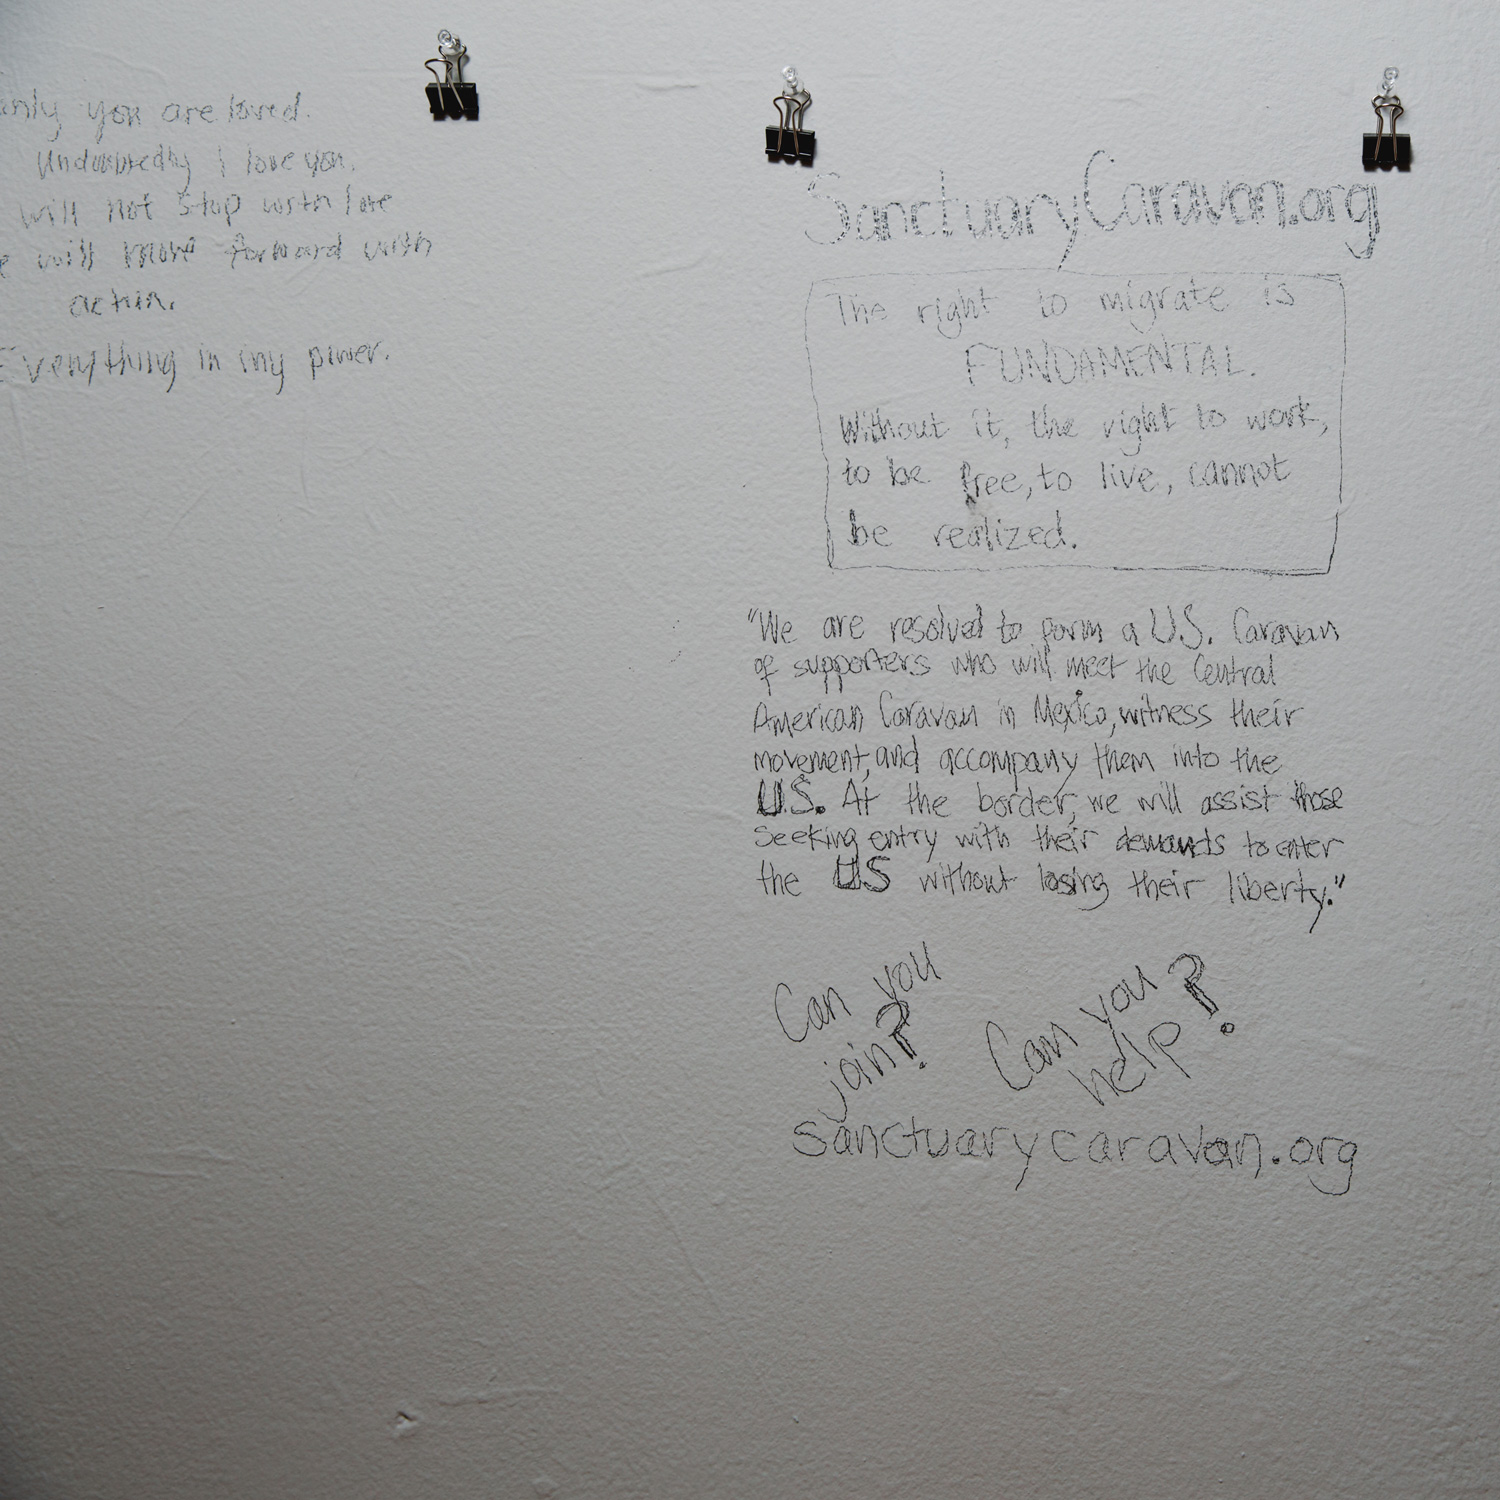 you are loved.
Undoubtedly I love you.
will not stop with love
will move forward with
action.
Everything in my power.
SanctuaryCaravan.org
The right to migrate is
FUNDAMENTAL.
Without it, the right to work,
to be free, to live, cannot
be realized.
"We are resolved to form a U.S. Caravan
of supporters who will meet the Central
American Caravan in Mexico, witness their
movement, and accompany them into the
U.S. At the border, we will assist those
seeking entry with their demands to enter
the US without losing their liberty."
Can you
join?
Can you
help?
sanctuarycaravan.org